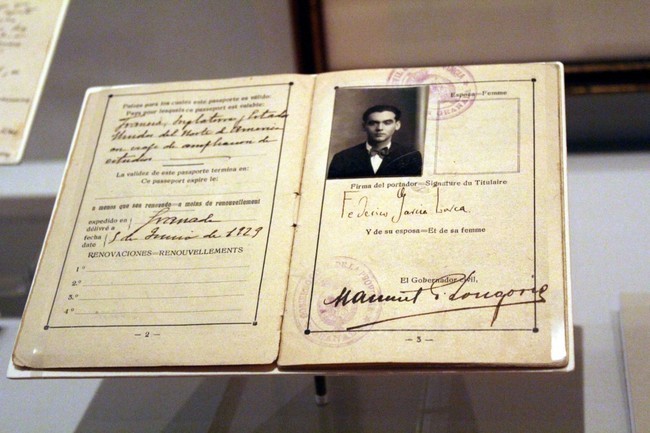 Países para los cuales este pasaporte es válido:
Pays pour lesquels ce passeport est valable:
Francia, Inglaterra y Estados
Unidos del Norte d America
en viaje de ampliacion de
estudios
La validez de este pasaporte termina en:
Ce passeport expire le:
a menos que sea renovado=a moins de renouvellement
expedido en
délivré a
Granada
fecha
date
8 de Junio de 1929
RENOVACIONES=RENOUVELLEMENTS
1.º
2.º
3.º
4.º
— 2 —
Esposa=Femme
Firma del portador=Signature du Titulaire
Federico García Lorca
Y de su esposa=Et de sa femme
El Gobernador civil,
Manuel
— 3 —